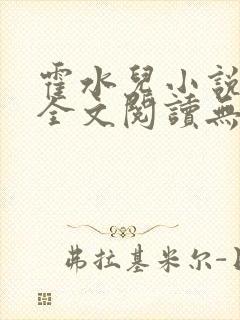 霍水兒小說
全文閱讀無
弗拉基米尔-